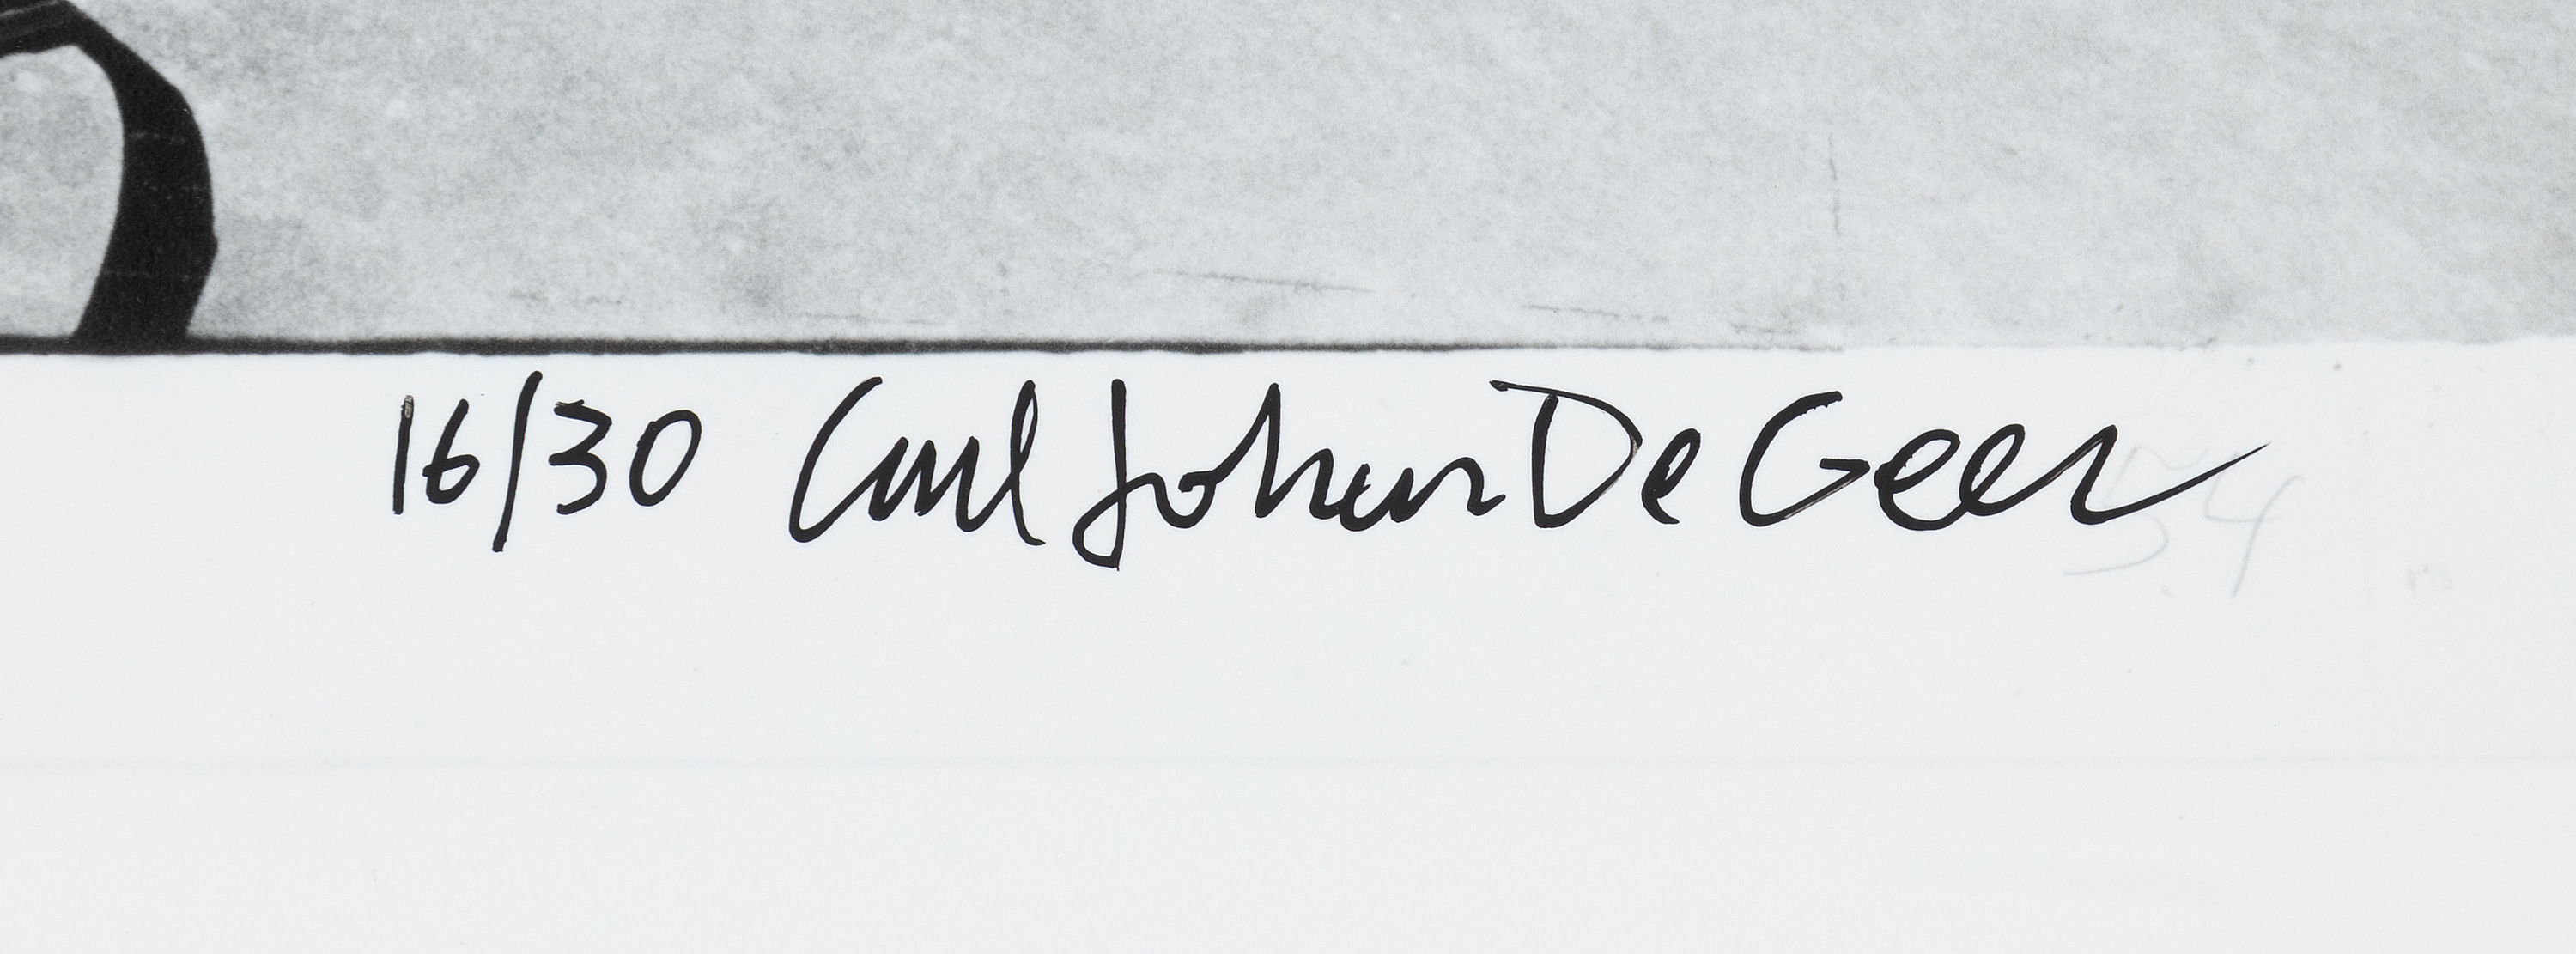 16/30 Carl Johan De Geer
54